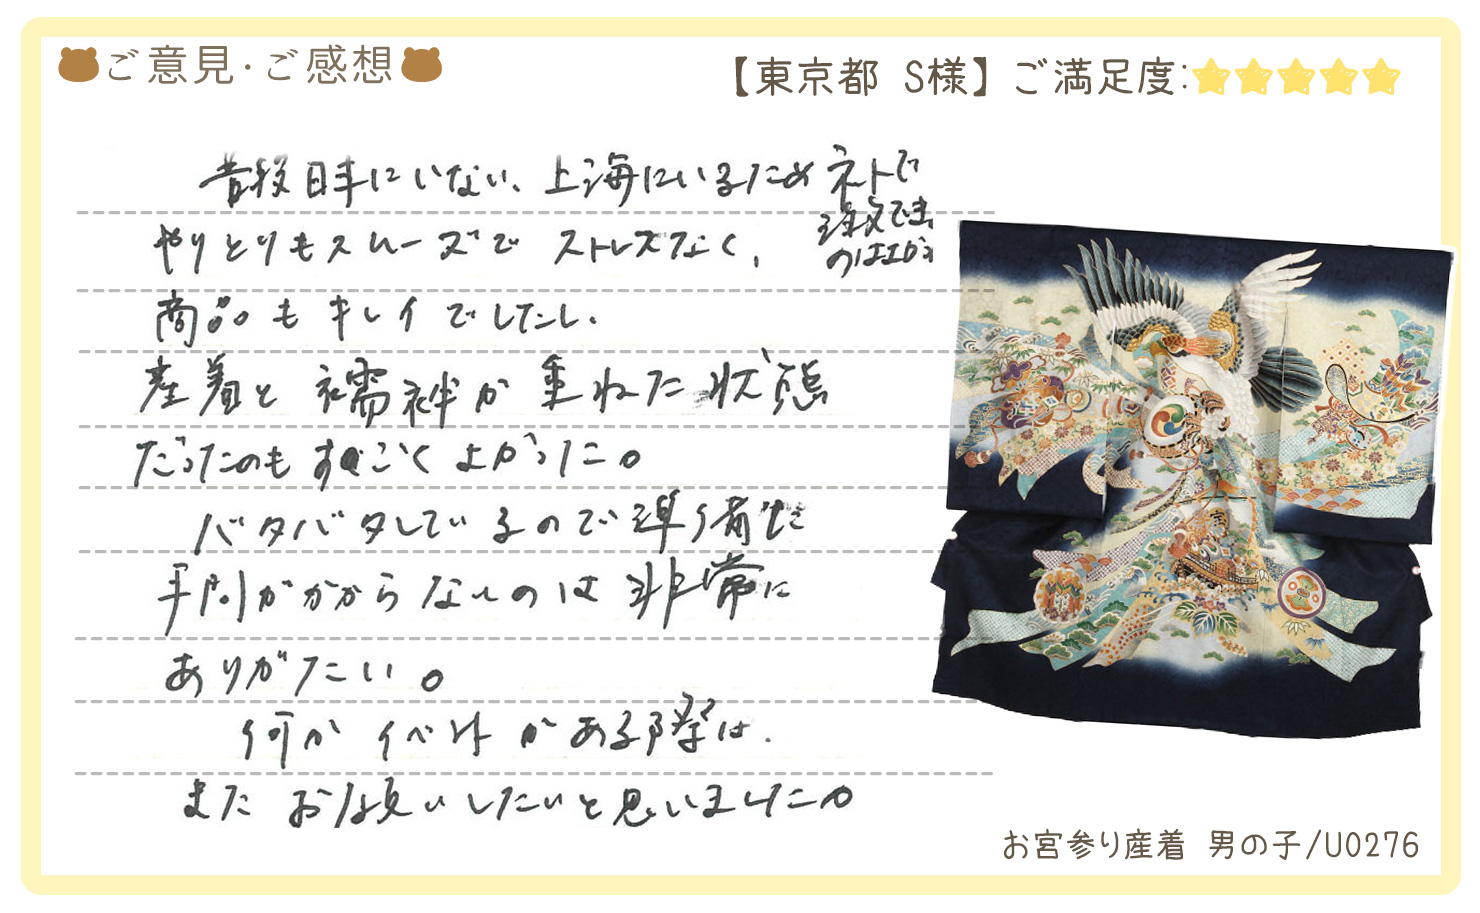 ご意見・ご感想
【東京都 S様】ご満足度:
普段日本にいない、上海にいるためネットで
注文できる
のはエがう
やりとりもスムーズでストレスなく、
商品もキレイでしたし、
産着と襦袢が重ねた状態
だったのもすごくよかった。
バタバタしているので準備に
手間がかからないのは非常に
ありがたい。
何かイベントがある際は、
またお願いしたいと思いました。
お宮参り産着 男の子/U0276